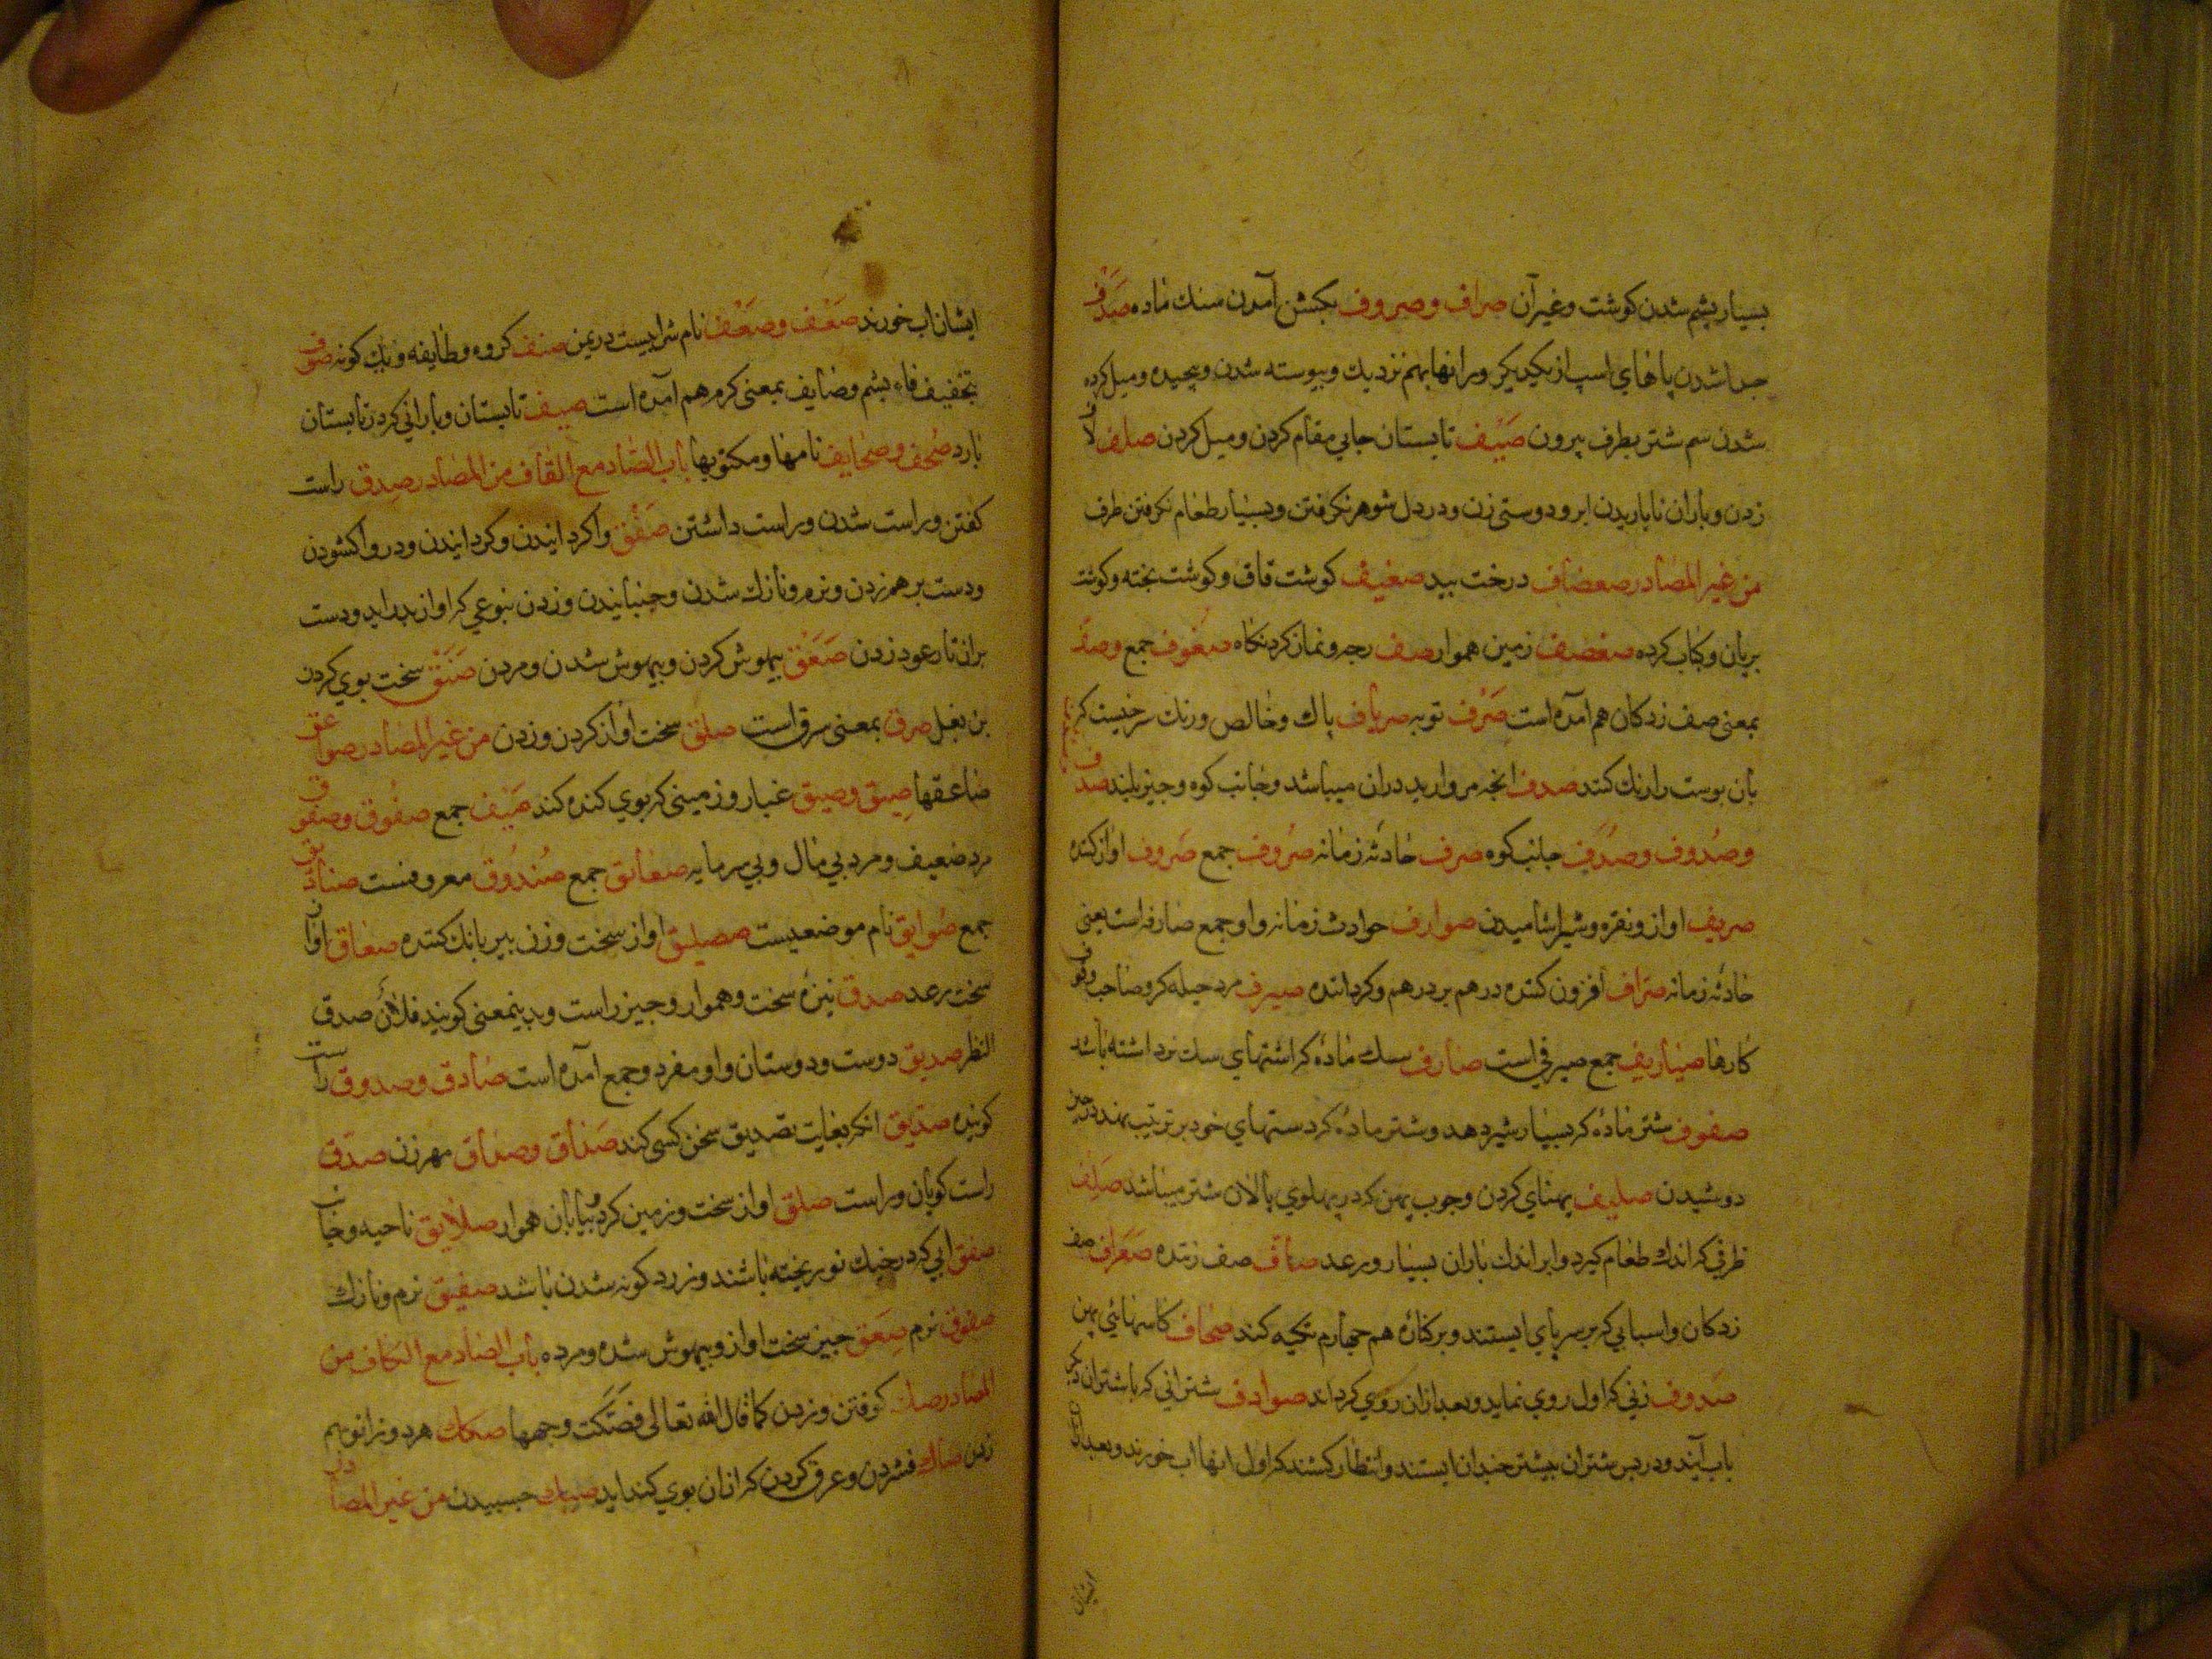 بسیار پشم شدن کوشت وغیر آن صراف وصروف بکشن آمدن سنك ماده صَدَف
جدا شدن پاهای اسپ از یکدیکر ورانها بهم نزدیك وپیوسته شدن وپیچیده ومیل کرده
شدن سم شتر بطرف پیرون صَیْف تابستان جایی مقام کردن ومیل کردن صلف لاف
زدن وباران ناباریدن ابر ودوستی زن ودر دل شوهر نکرفتن وبسیار طعام نکرفتن ظرف
من غیر المصادر صفصاف درخت بید صفیف کوشت قاق وکوشت پخته وکوشت
بریان وکباب کرده صفصف زمین هموار صف رجه ونماز کردنکاه صفوف جمع وصف
بمعنی صف زدکان هم آمده است صَرْف توبه صریاف پاك وخالص ورنك سرخیست که
بان پوست را رنك کنند صدف انجه مروارید دران میباشد وجانب کوه وچیز بلند صدف
وصُدُوف وصُدُف جانب کوه صرف حادثه زمانه صُرُوف جمع صَروف اواز کننده
صریف اواز ونقره وشیر اشامیدن صوارف حوادث زمانه واو جمع صارفه است یعنی
حادثه زمانه صرّاف افزون کننده درهم بر درهم وکرداننده صیرف مرد حیله کر وصاحب وقوف
کارها صیاریف جمع صیرفی است صارف سك ماده که اشتهای سك نر داشته باشد
صفوف شتر ماده که بسیار شیر دهد وشتر ماده که دستهای خود بر ترتیب نهد در حین
دوشیدن صلیف پهنای کردن وچوب پهن که در پهلوی پالان شتر میباشد صَلِف
ظرفی که اندك طعام کیرد وابر اندك باران بسیار رعد صاف صف زننده صَوافّ صف
زدکان واسبابی که بر سر پای ایستند وبر کناره هم چهارم تکیه کند صحاف کاسهائی پهن
صَدوف زنی که اول روی نماید وبعد ازان روی کرداند صوادف شترانی که با شتران دیکر
باب آیند ودر پس شتران بیشتر چندان ایستند وانتظار کشند که اول انها اب خورند وبعد ازان
ایشان
ایشان اب خورند صَعْف وصَعَف نام شرابیست در یمن صنف کروه وطایفه ویك کونه صوف
بتخفیف فاء پشم وصایف بمعنی کرم هم آمده است صیف تابستان وبارانی که در تابستان
بارد صُحُف وصحایف نامها ومکتوبها باب الصاد مع القاف من المصادر صِدق راست
کفتن وراست شدن وراست داشتن صَفْق واکردانیدن وکردانیدن ودر واکشودن
ودست بر هم زدن ونرم ونازك شدن وجنبانیدن وزدن بنوعی که اواز بدر اید ودست
بران تار عود زدن صَعْق بیهوش کردن وبیهوش شدن ومردن صَنَق سخت بوی کردن
بن بغل صرق بمعنی سرق است صلق سخت اواز کردن وزدن من غیر المصادر صواعق
صاعقها صیق وصیق غبار وزمینی که بوی کنده کند صَیْف جمع صفوق وصفوق
مرد ضعیف ومرد بی مال وبی سرمایه صعافق جمع صُندُوق معروفست صنادیق
جمع صُوایق نام موضعیست صهصلیق اواز سخت وزن پیر بانك کننده صعاق اواز
سخت رعد صدق نیزه سخت وهموار وچیز راست وبدینمعنی کویند فلان صدق
النظر صدیق دوست ودوستان واو مفرد وجمع آمده است صادق وصدوق راست
کوینده صدّیق انکه بغایت تصدیق سخن کسی کند صَداق وصداق مهر زن صدق
راست کویان وراست صلق اواز سخت وزمین کرد وبیابان هموار صلایق ناحیه وجانب
صفق ابی که در خیك نو ریخته باشند وزرد کونه شدن باشد صفیق نرم ونازك
صفوق نرم صَعِق چیز سخت اواز وبیهوش شده ومرده باب الصاد مع الکاف من
المصادر صك کوفتن وزدن کما قال الله تعالی فصکت وجهها صکك هر دو زانو بهم
زدن صاك فشردن وعرق کردن که ازان بوی کند اید صیك چسبیدن من غیر المصادر